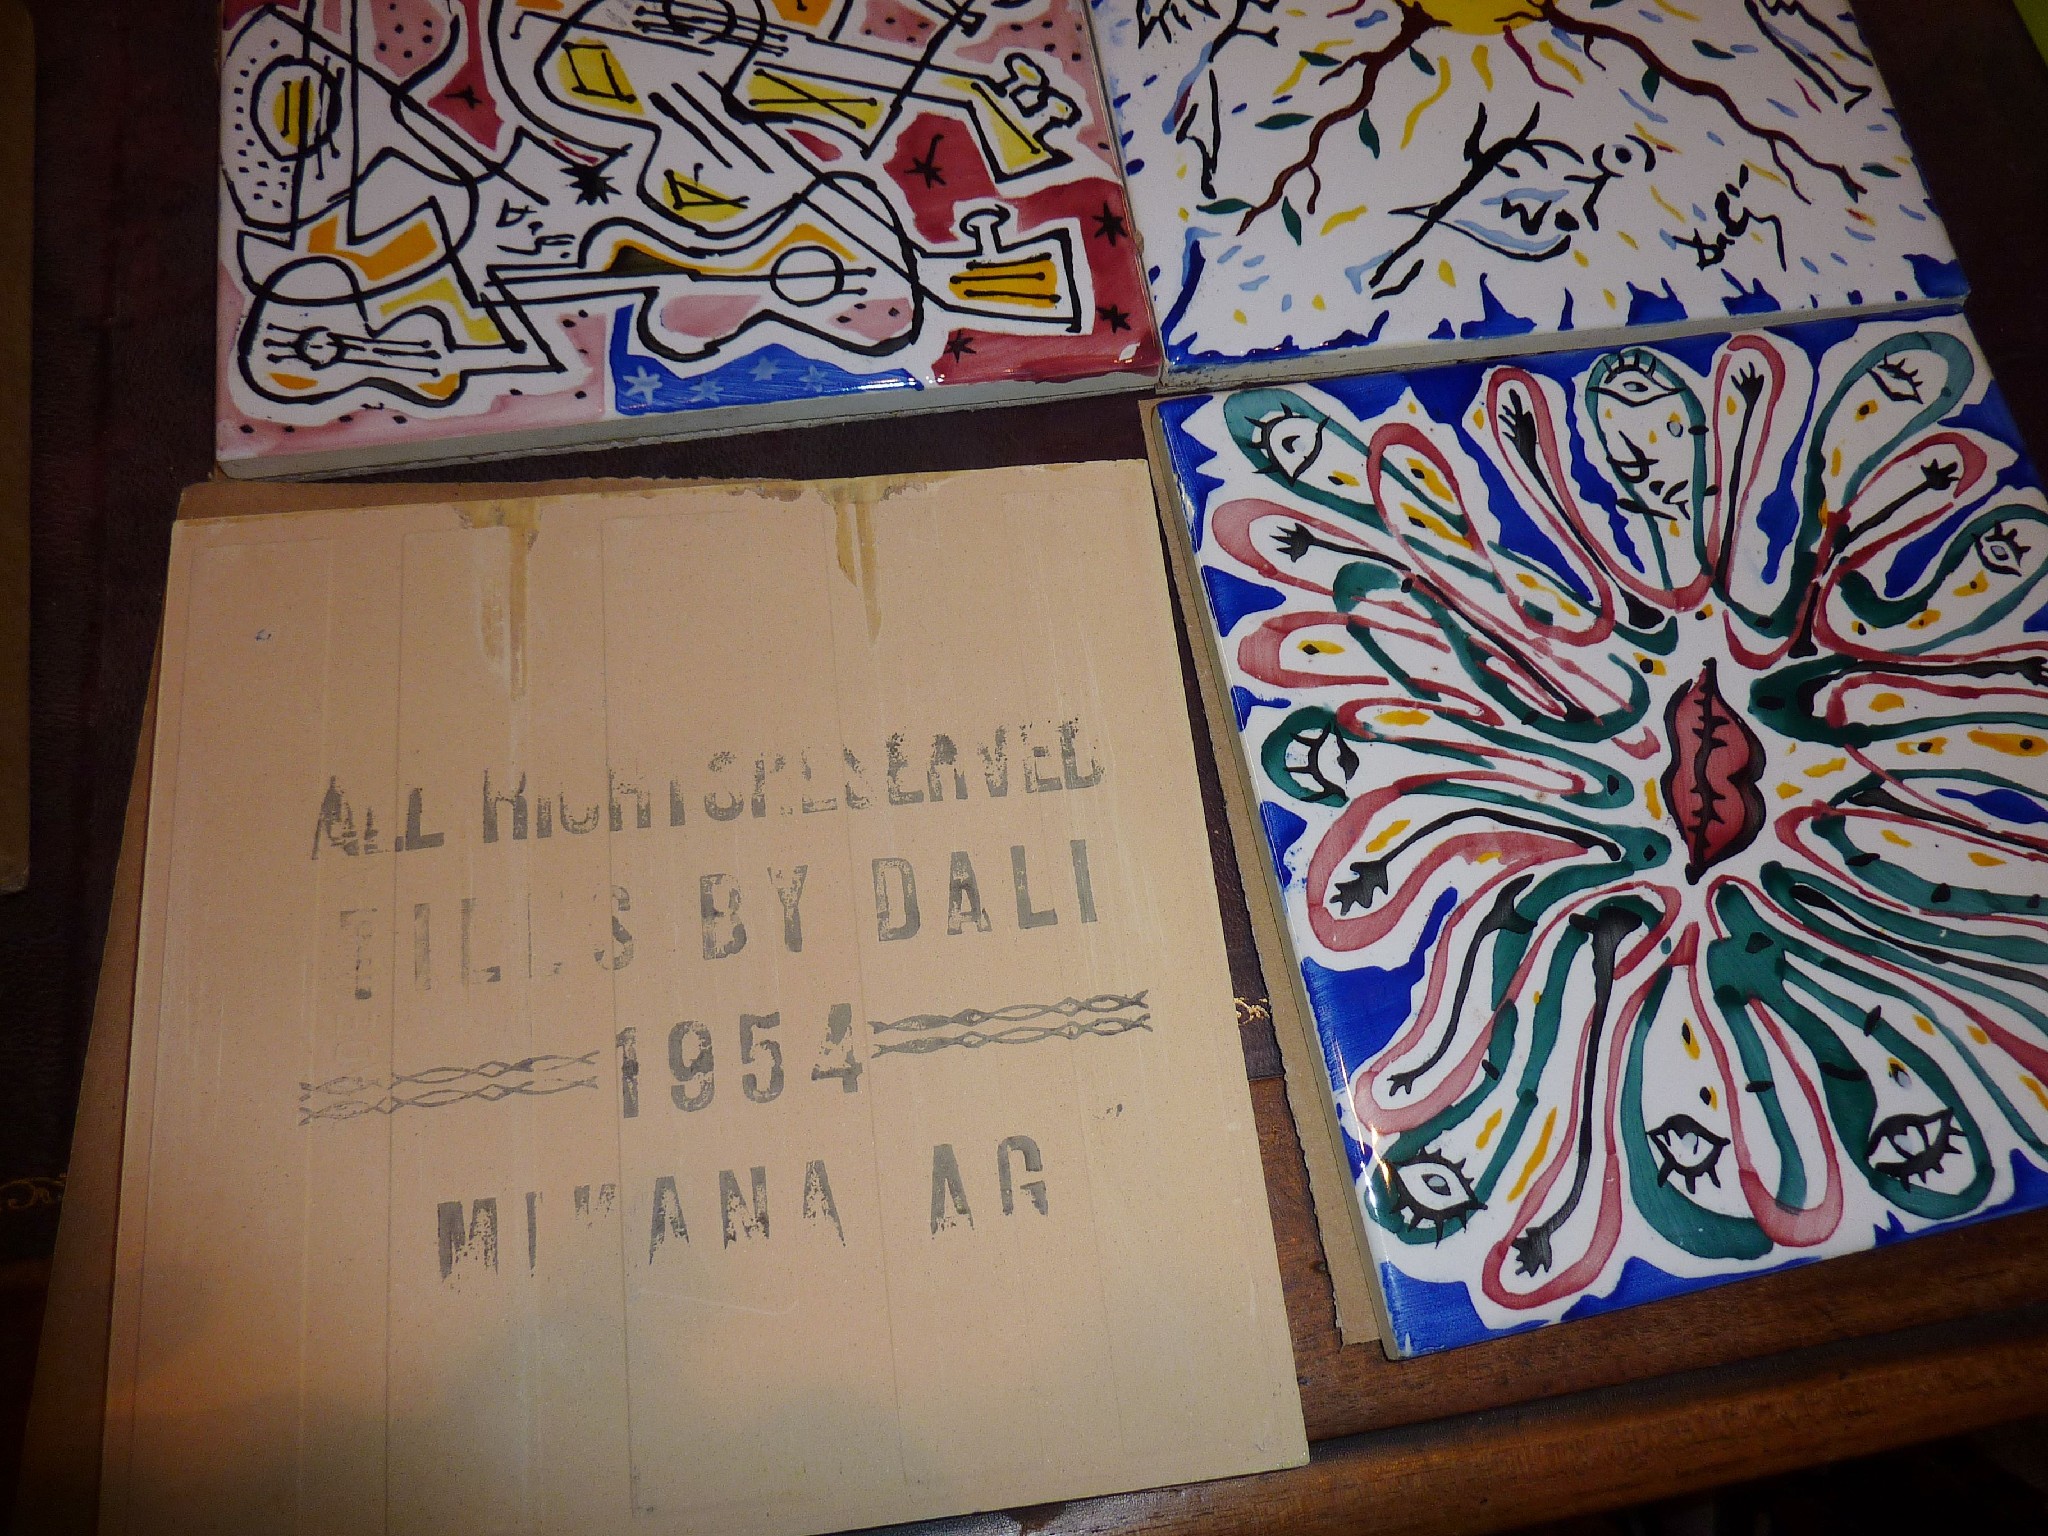 Dalí
Dalí
Dalí
ALL RIGHTS RESERVED
TILES BY DALI
1954
MIKANA AG